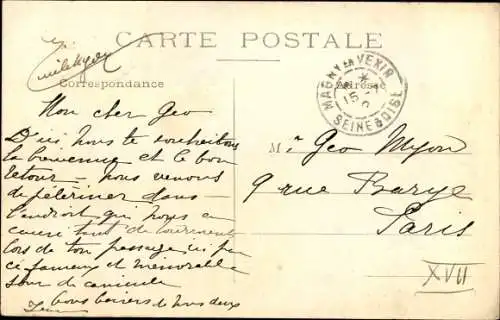 CARTE POSTALE
Correspondance
Adresse
MAGNY EN VEXIN
15
SEINE & OISE
Mon cher Geo
D'ici nous te souhaitons
la bienvenue et le bon
retour = nous venons
de pélériner dans
l'endroit qui nous a
causé tant de tourments
lors de ton passage ici par
ce fameux et mémorable
jour de canicule
Bons baisers de nous deux
Mr Geo Myon
9 rue Barye
Paris
XVII